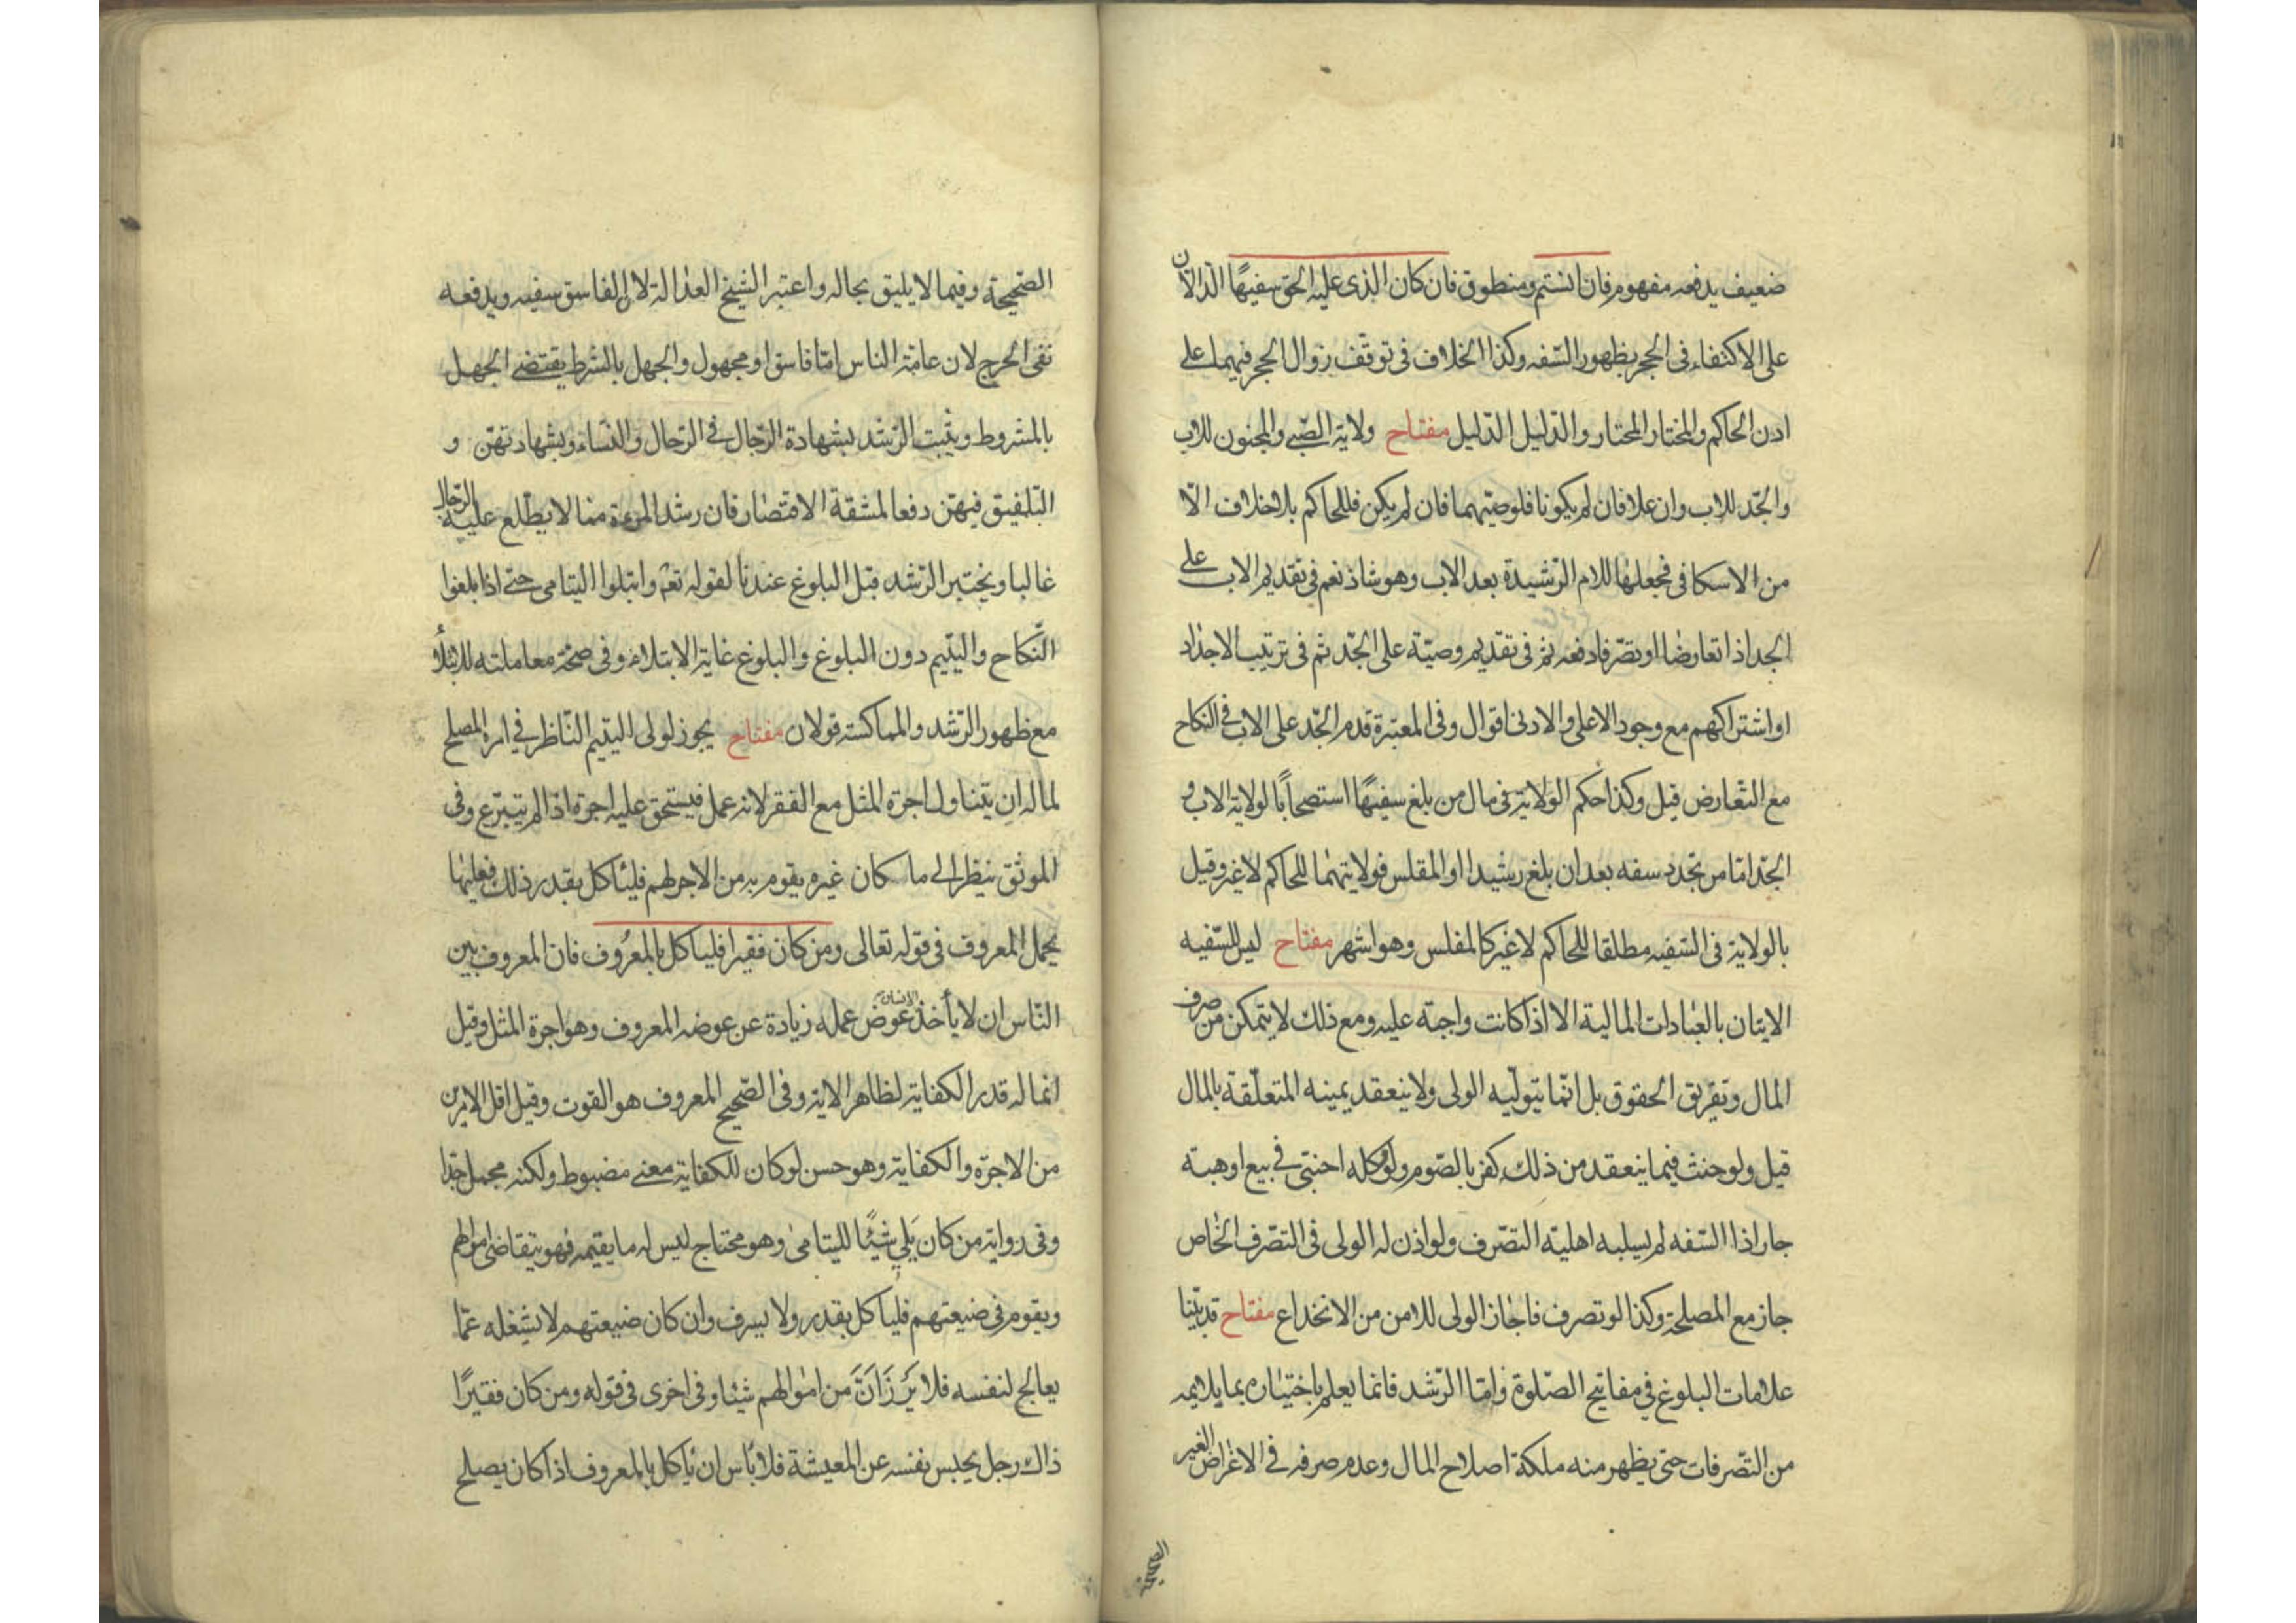 ضعيف يدفعه مفهوم فان انستم ومنطوق فان كان الذى عليه الحق سفيهًا الدالان
على الاكتفاء فى الحجر بظهور السّفه وكذا الخلاف فى توقف زوال الحجر فيهما على
اذن الحاكم والمختار المختار والدّليل الدّليل مفتاح ولاية الصّبى والمجنون للاب
والجّد للاب وان علا فان لم يكونا فلوصيّهما فان لم يكن فللحاكم بلا خلاف الّا
من الاسكافى فجعلها للام الرّشيدة بعد الاب وهو شاذ نعم فى تقديم الاب على
الجد اذا تعارضا او تصّرفا دفعه ثم فى تقديم وصيّه على الجّد ثم فى ترتيب الاجداد
او اشتراكهم مع وجود الاعلى والادنى اقوال وفى المعتبرة قدم الجّد على الاب فى النكاح
مع التّعارض قيل وكذا حكم الولاية فى مال من بلغ سفيهًا استصحابًا لولاية الاب و
الجّد امّا من تجدد سفه بعد ان بلغ رشيدا او المفلس فولايتهما للحاكم لا غير وقيل
بالولاية فى السّفيه مطلقا للحاكم لا غير كالمفلس وهو اشهر مفتاح ليس للسّفيه
الايتان بالعبادات المالية الا اذا كانت واجبة عليه ومع ذلك لا يتمكن من صرف
المال وتفريق الحقوق بل انّما يتولّيه الولى ولا ينعقد يمينه المتعلّقة بالمال
قيل ولو حنث فيما ينعقد من ذلك كفر بالصّوم ولو وكله اجنبّى فى بيع او هبة
جاز اذا السّفه لم يسلبه اهليّة التصّرف ولو اذن له الولى فى التصّرف الخاص
جاز مع المصلحة وكذا لو تصرف فاجاز الولى للامن من الانخداع مفتاح قد بيّنا
علامات البلوغ في مفاتيح الصّلوة وامّا الرّشد فانما يعلم باختياره بما يلايمه
من التّصرفات حتى يظهر منه ملكة اصلاح المال وعدم صرفه فى الاغراض الغير
الصّحيحة وفيما لا يليق بحاله واعتبر الشيخ العدالة لان الفاسق سفيه ويدفعه
نفى الحرج لان عامّة الناس امّا فاسق او مجهول والجهل بالشرط يقتضى الجهل
بالمشروط ويثبت الرّشد بشهادة الرّجال فى الرّجال والنّساء وبشهادتهنّ و
التّلفيق فيهنّ دفعا لمشقة الاقتصار فان رشد المرءة مما لا يطّلع عليه الرّجال
غالبا ويختبر الرّشد قبل البلوغ عندنا لقوله تع وابتلوا اليتامى حتى اذا بلغوا
النّكاح واليّتيم دون البلوغ والبلوغ غاية الابتلاء وفى صحّة معاملته للابتلاء
مع ظهور الرّشد والمماكسة قولان مفتاح يجوز لولى اليتيم النّاظر فى امره المصلح
لماله ان يتناول اجرة المثل مع الفقر لانه عمل فيستحق عليه اجرة اذا لم يتبرّع وفى
الموثق ينظر الى ما كان غيره يقوم به من الاجر لهم فليأكل بقدر ذلك فعليها
يحمل المعروف فى قوله تعالى ومن كان فقيرا فليأكل بالمعرُوف فان المعروف بين
النّاس ان لا يأخذ الانسان عوض عمله زيادة عن عوضه المعروف وهو اجرة المثل وقيل
انما له قدر الكفاية لظاهر الاية وفى الصّحيح المعروف هو القوت وقيل اقل الامرين
من الاجرة والكفاية وهو حسن لو كان للكفاية معنى مضبوط ولكنه مجمل جدّا
وفى رواية من كان يَلي شَيئًا لليتامىٰ وهو محتاج ليس له ما يقيمه فهو يتقاضى اموالهم
ويقوم فى ضيعتهم فليأكل بقدر ولا يسرف وان كان ضيعتهم لا يشغله عمّا
يعالج لنفسه فلا يَرزَانَّ من اموالهم شيئا وفى اخرى فى قوله ومن كان فقيرًا
ذاك رجل يحبس نفسه عن المعيشة فلا بأس ان يأكل بالمعروف اذا كان يصلح